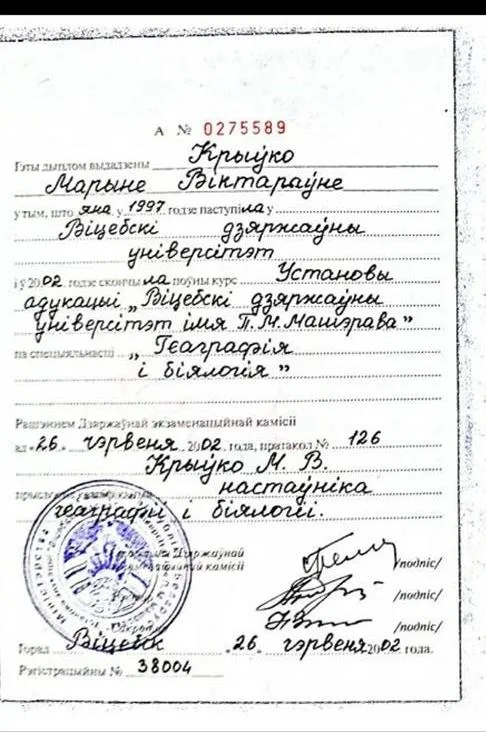 А № 0275589
Гэты дыплом выдадзены Крыўко
Марыне Віктараўне
у тым, што яна у 1997 годзе паступіла у
Віцебскі дзяржаўны
універсітэт
і ў 2002 годзе скончыла поўны курс Установы
адукацыі „Віцебскі дзяржаўны
універсітэт імя П.М.Машэрава”
па спецыяльнасці „Геаграфія
і біялогія”
Рашэннем Дзяржаўнай экзаменацыйнай камісіі
ад «26» чэрвеня 2002 года, пратакол № 126
Крыўко М. В.
настаўніка
геаграфіі і біялогіі.
Дзяржаўнай
камісіі
/подпіс/
/подпіс/
/подпіс/
Горад Віцебск «26» чэрвеня 2002 года.
Рэгістрацыйны № 38004